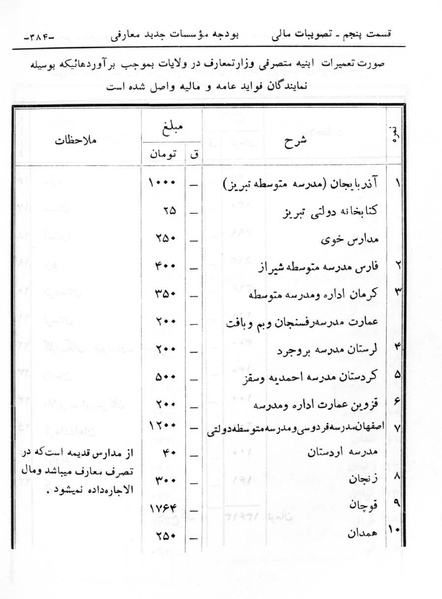 قسمت پنجم ـ تصویبات مالی    بودجه مؤسسات جدید معارفی    -۳۸۴-
صورت تعمیرات ابنیه متصرفی وزارتمعارف در ولایات بموجب برآوردهائیکه بوسیله
نمایندگان فواید عامه و مالیه واصل شده است
نمره    شرح    مبلغ    ملاحظات
ق    تومان
۱    آذربایجان (مدرسه متوسطه تبریز)    –    ۱۰۰۰
کتابخانه دولتی تبریز    –    ۲۵
مدارس خوی    –    ۲۵۰
۲    فارس مدرسه متوسطه شیراز    –    ۴۰۰
۳    کرمان اداره ومدرسه متوسطه    –    ۳۵۰
عمارت مدرسه رفسنجان وبم وبافت    –    ۲۰۰
۴    لرستان مدرسه بروجرد    –    ۲۰۰
۵    کردستان مدرسه احمدیه وسقز    –    ۵۰۰
۶    قزوین عمارت اداره ومدرسه    –    ۲۰۰
۷    اصفهان مدرسه فردوسی ومدرسه متوسطه دولتی    –    ۱۲۰۰
مدرسه اردستان    –    ۴۰    از مدارس قدیمه است که در
۸    زنجان    –    ۳۰۰    تصرف معارف میباشد ومال
الاجاره داده نمیشود .
۹    قوچان    –    ۱۷۶۴
۱۰    همدان    –    ۲۵۰